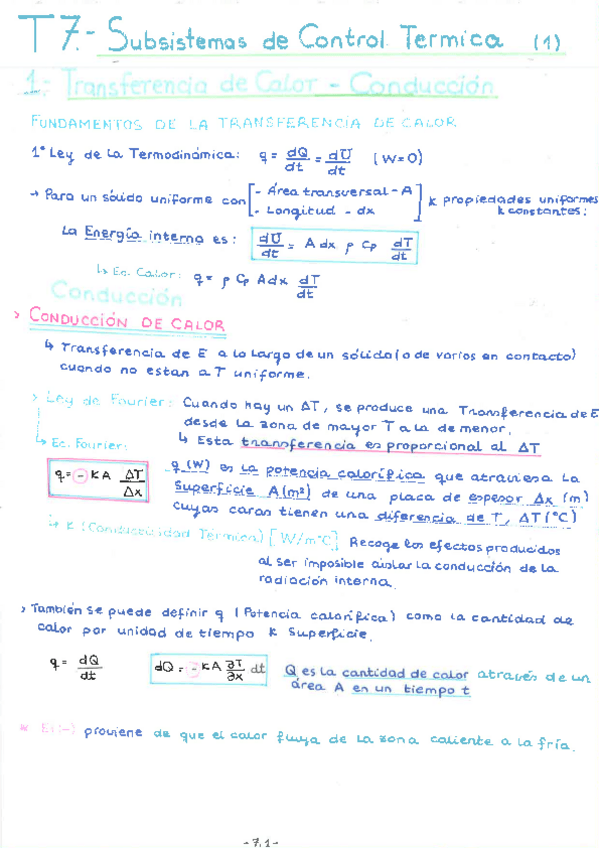 T7.- Subsistemas de Control Termica (1)
1.- Transferencia de Calor - Conducción
FUNDAMENTOS DE LA TRANSFERENCIA DE CALOR
1ª Ley de la Termodinámica: q = dQ/dt = dU/dt (W=0)
→ Para un sólido uniforme con [- Área transversal - A
- Longitud - dx] & propiedades uniformes
& constantes:
La Energía interna es: dU/dt = A dx ρ Cp dT/dt
↳ Ec. Calor: q = ρ Cp A dx dT/dt
Conducción
> CONDUCCIÓN DE CALOR
↳ Transferencia de E a lo largo de un sólido (o de varios en contacto)
cuando no estan a T uniforme.
> Ley de Fourier: Cuando hay un ΔT, se produce una Transferencia de E
desde la zona de mayor T a la de menor.
↳ Esta transferencia es proporcional al ΔT
↳ Ec. Fourier:
q = - K A ΔT/Δx
q (W) es la potencia calorífica que atraviesa la
superficie A (m²) de una placa de espesor Δx (m)
cuyas caras tienen una diferencia de T, ΔT (°C)
↳ K (Conductividad Térmica) [W/m°C] Recoge los efectos producidos
al ser imposible aislar la conducción de la
radiación interna.
> También se puede definir q (Potencia calorífica) como la cantidad de
calor por unidad de tiempo & superficie.
q = dQ/dt
dQ = - K A ∂T/∂x dt
Q es la cantidad de calor através de un
área A en un tiempo t
* El (-) proviene de que el calor fluya de la zona caliente a la fría.
- 7.1 -